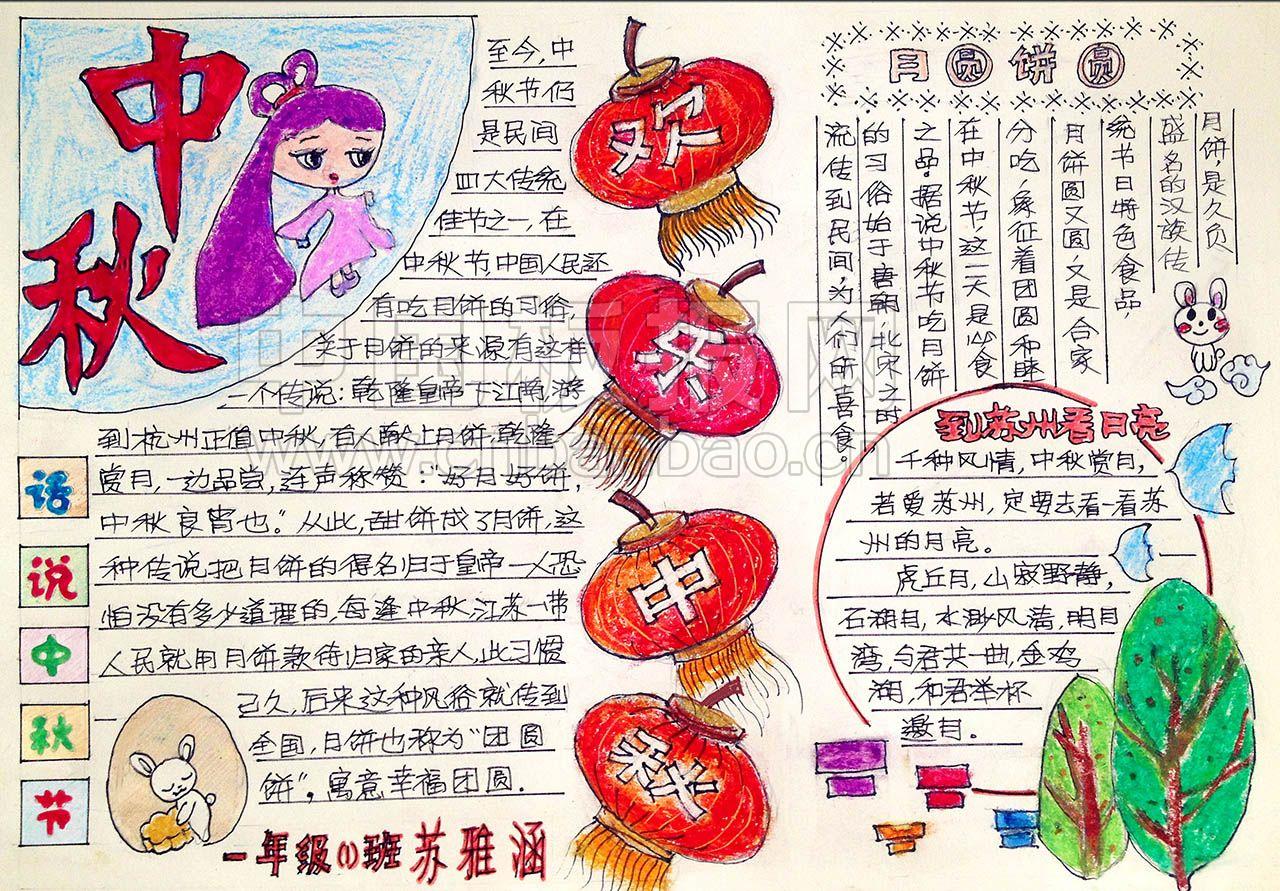 中秋
至今,中
秋节仍
是民间
四大传统
佳节之一,在
中秋节中国人民还
有吃月饼的习俗,
关于月饼的来源有这样
一个传说:乾隆皇帝下江南,游
到杭州正值中秋,有人献上月饼,乾隆
赏月,一边品尝,连声称赞:“好月好饼,
中秋良宵也.”从此,甜饼成了月饼,这
种传说把月饼的得名归于皇帝一人恐
怕没有多少道理的,每逢中秋,江苏一带
人民就用月饼款待归家的亲人,此习惯
已久,后来这种风俗就传到
全国,月饼也称为“团圆
饼”。寓意幸福团圆.
话说中秋节
一年级(1)班苏雅涵
欢
乐
中
秋
月圆饼圆
月饼,是久负
盛名的汉族传
统节日特色食品,
月饼圆又圆,又是合家
分吃,象征着团圆和睦
在中秋节这一天是必食
之品.据说中秋节吃月饼
的习俗始于唐朝,北宋之时
流传到民间,为人们所喜食。
到苏州看月亮
千种风情,中秋赏月,
若爱苏州,定要去看一看苏
州的月亮。
虎丘月,山寂野静,
石湖月,水渺风清,明月
湾,与君共一曲,金鸡
湖,和君举杯
邀月。
中国板报网
www.cnbanbao.cn